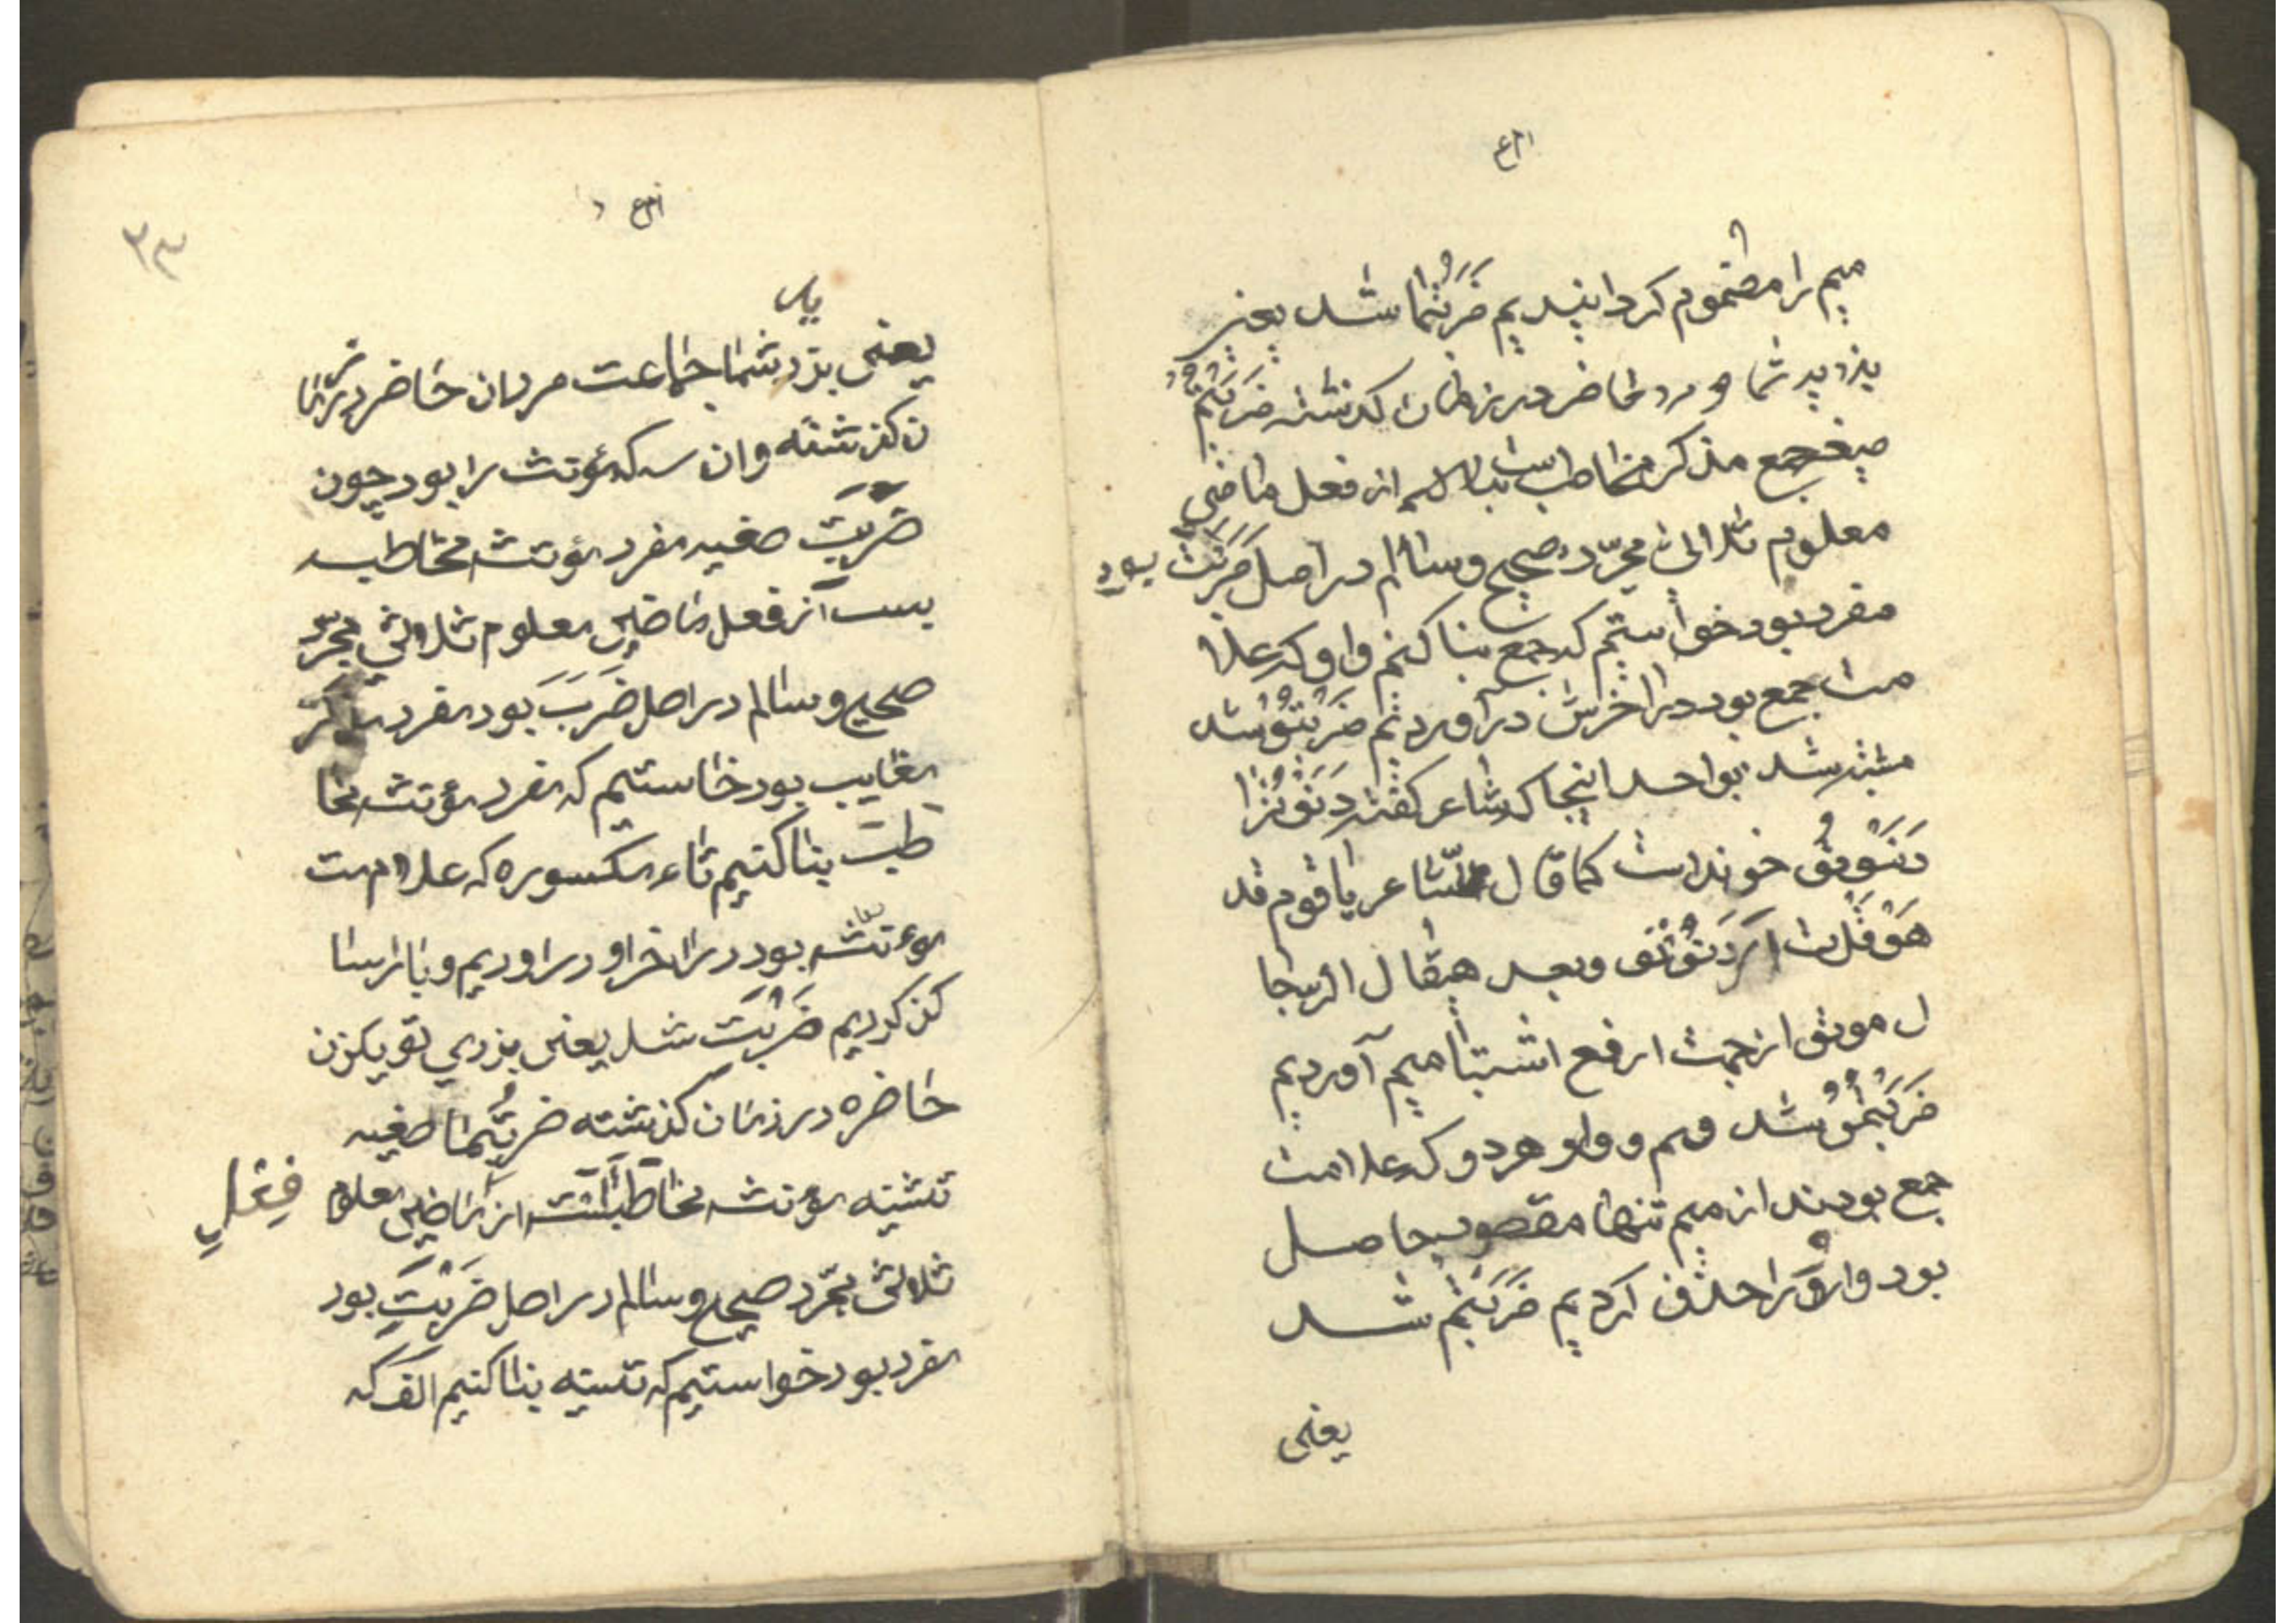 میم را مضموم کردانیدیم ضَرَبْتُما شد یعنی
بزدید شما دو مرد حاضر در زمان کدشته ضَرَبْتُمْ
صیغه جمع مذکر مخاطب است از فعل ماضی
معلوم ثلاثی مجرّد صحیح وسالم در اصل ضَرَبْتَ بود
مفرد بود خواستیم که جمع بنا کنیم واو که علا
مت جمع بود در اخرش در آوردیم ضَرَبْتُوُ شد
شد بواحد اینجا که شاعر کفته
خوند است کما قال الشاعر یا قوم قد
وبعد حیقال الرجا
ل موثق از جهت رفع اشتبا میم آوردیم
ضَرَبْتُمُوُ شد میم و واو هردو که علامت
جمع بودند از میم تنها مقصود حاصل
بود واوُ را حذف کردیم ضَرَبْتُمْ شد
یعنی
۳۳
یعنی بزدید شما جماعت مردان حاضر در زما
ن کذشته وان سه که مؤنث را بود چون
ضَرَبْتِ صغیه مفرد مؤنث مخاطبه
است از فعل ماضی معلوم ثلاثی مجرّد
صحیح وسالم در اصل ضَرَبَ بود مفرد مذکر
مغایب بود خاستیم که مفرد مؤنث مخا
طبت بنا کنیم تاء مکسوره که علامت
مؤنث بود در اخر او در اوردیم وبا را سا
کن کردیم ضَرَبْتِ شد یعنی بزدی تو یکزن
حاضره در زمان کذشته ضربتُما صغیه
تثنیه مؤنث مخاطبه است از ماضی معلوم فِعْلِ
ثلاثی مجرّد صحیح وسالم در اصل ضَرَبْتِ بود
مفرد بود خواستیم که تثنیه بنا کنیم الف که